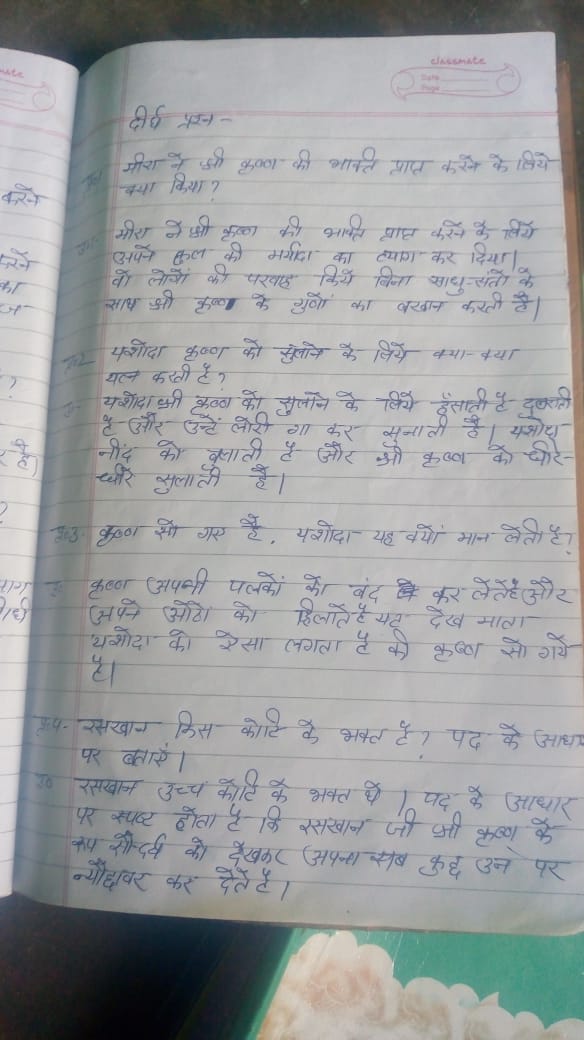 classmate
Date
Page
दीर्घ प्रश्न -
प्र०1 मीरा ने श्री कृष्ण की भाक्ति प्राप्त करने के लिये
क्या किया ?
उ०- मीरा ने श्री कृष्ण की भाक्ति प्राप्त करने के लिये
अपने कुल की मर्यादा का त्याग कर दिया।
वो लोगों की परवाह किये बिना साधु-संतो के
साथ श्री कृष्ण के गुणों का बखान करती है।
प्र०2 यशोदा कृष्ण को सुलाने के लिये क्या-क्या
यत्न करती है ?
उ०- यशोदा श्री कृष्ण को सुलाने के लिये हँसाती है दुलराती
है और उन्हें लोरी गा कर सुनाती है। यशोदा
नींद को बुलाती है और श्री कृष्ण को धीरे-
धीरे सुलाती है।
प्र०3- कृष्ण सो गए हैं, यशोदा यह क्यों मान लेती है?
उ० कृष्ण अपनी पलकों को बंद कर लेते है और
अपने ओंठो को हिलाते है यह देख माता
यशोदा को ऐसा लगता है की कृष्ण सो गये
है।
प्र०4- रसखान किस कोटि के भक्त है ? पद के आधार
पर बताएं।
उ० रसखान उच्च कोटि के भक्त थे। पद के आधार
पर स्पष्ट होता है कि रसखान जी श्री कृष्ण के
रूप सौन्दर्य को देखकर अपना सब कुछ उन पर
न्यौछावर कर देते है।